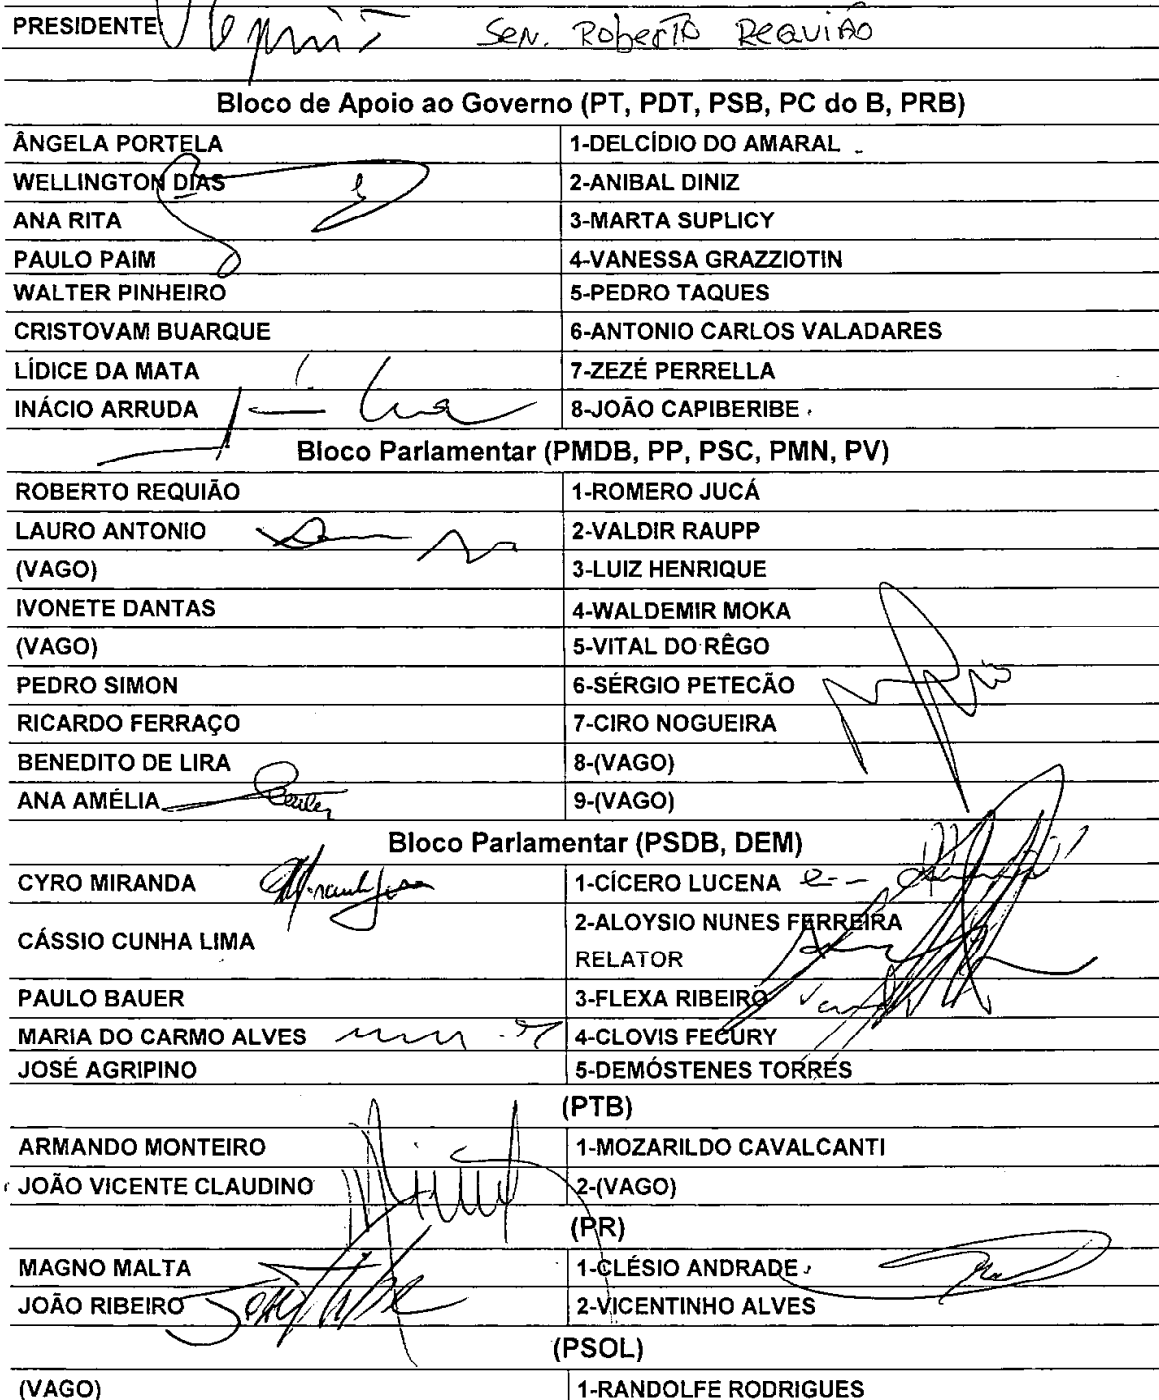 PRESIDENTE: Sen. Roberto Requião
Bloco de Apoio ao Governo (PT, PDT, PSB, PC do B, PRB)
ÂNGELA PORTELA 1-DELCÍDIO DO AMARAL
WELLINGTON DIAS 2-ANIBAL DINIZ
ANA RITA 3-MARTA SUPLICY
PAULO PAIM 4-VANESSA GRAZZIOTIN
WALTER PINHEIRO 5-PEDRO TAQUES
CRISTOVAM BUARQUE 6-ANTONIO CARLOS VALADARES
LÍDICE DA MATA 7-ZEZÉ PERRELLA
INÁCIO ARRUDA 8-JOÃO CAPIBERIBE
Bloco Parlamentar (PMDB, PP, PSC, PMN, PV)
ROBERTO REQUIÃO 1-ROMERO JUCÁ
LAURO ANTONIO 2-VALDIR RAUPP
(VAGO) 3-LUIZ HENRIQUE
IVONETE DANTAS 4-WALDEMIR MOKA
(VAGO) 5-VITAL DO RÊGO
PEDRO SIMON 6-SÉRGIO PETECÃO
RICARDO FERRAÇO 7-CIRO NOGUEIRA
BENEDITO DE LIRA 8-(VAGO)
ANA AMÉLIA 9-(VAGO)
Bloco Parlamentar (PSDB, DEM)
CYRO MIRANDA 1-CÍCERO LUCENA
CÁSSIO CUNHA LIMA 2-ALOYSIO NUNES FERREIRA
RELATOR
PAULO BAUER 3-FLEXA RIBEIRO
MARIA DO CARMO ALVES 4-CLOVIS FECURY
JOSÉ AGRIPINO 5-DEMÓSTENES TORRES
(PTB)
ARMANDO MONTEIRO 1-MOZARILDO CAVALCANTI
JOÃO VICENTE CLAUDINO 2-(VAGO)
(PR)
MAGNO MALTA 1-CLÉSIO ANDRADE
JOÃO RIBEIRO 2-VICENTINHO ALVES
(PSOL)
(VAGO) 1-RANDOLFE RODRIGUES